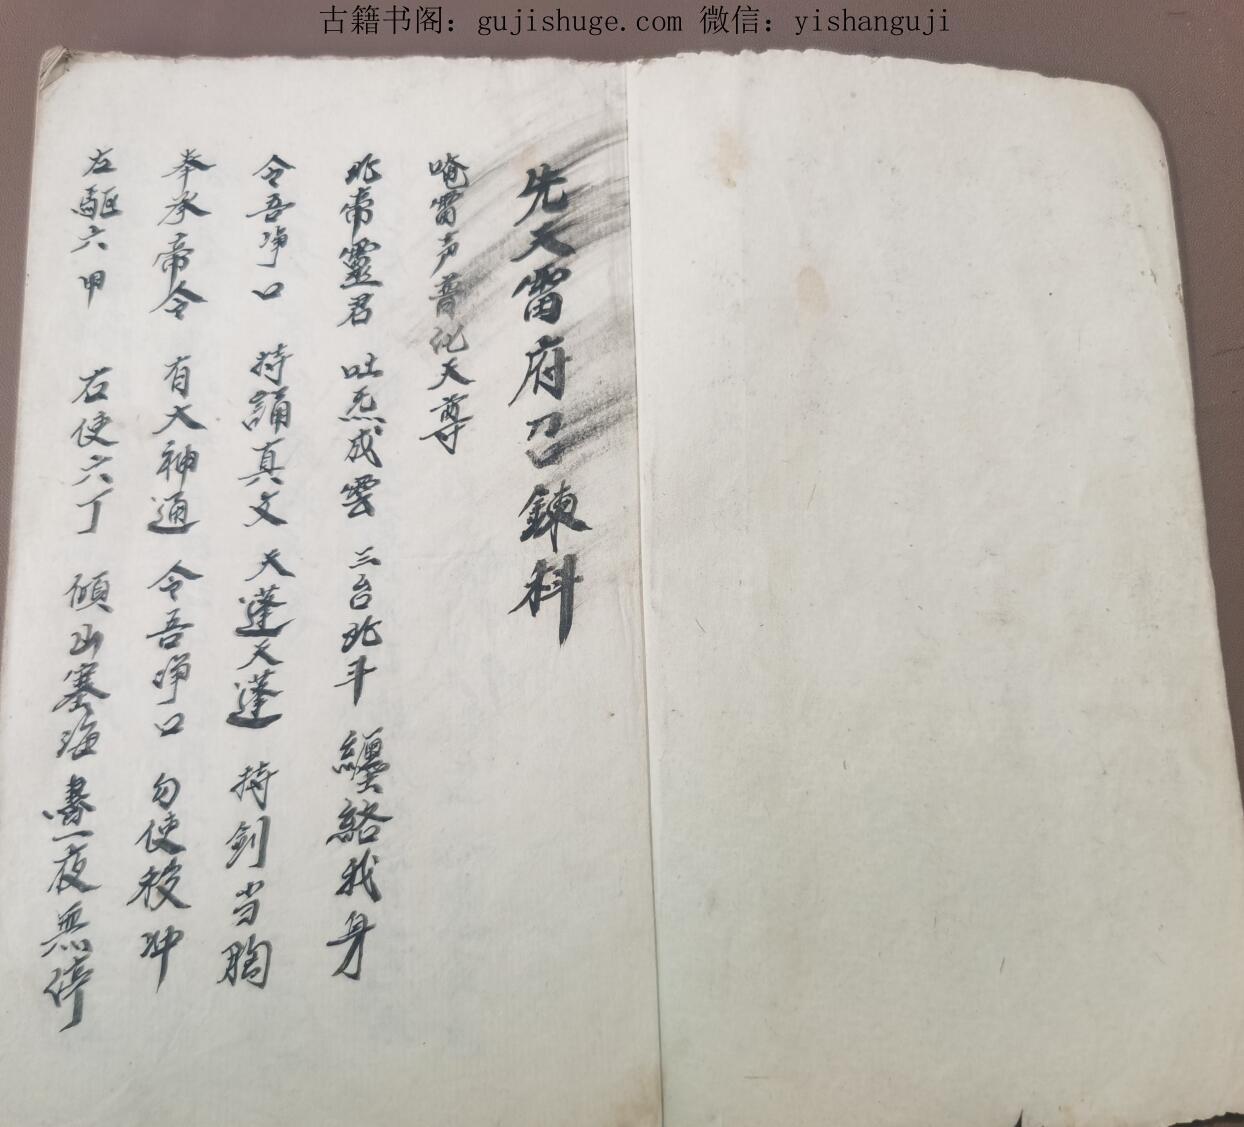 古籍书阁：gujishuge.com 微信：yishanguji
先天雷府召鍊科
唵雷声普化天尊
北帝靈君 吐炁成雲 三台北斗 纏絡我身
令吾净口 持誦真文 天蓬天蓬 持剑当胸
奉承帝令 有大神通 令吾净口 勿使 冲
左驅六甲 右使六丁 傾山塞海 晝夜無停